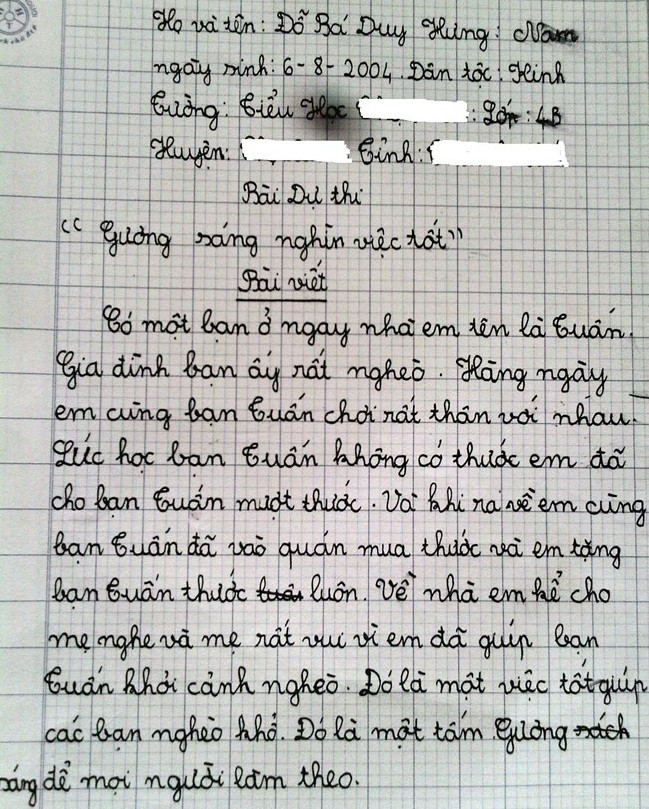 Họ và tên: Đỗ Bá Duy Hưng: Nam
ngày sinh: 6-8-2004. Dân tộc: Kinh
Trường: Tiểu Học : Lớp: 4B
Huyện: Tỉnh:
Bài Dự thi
"Gương sáng nghìn việc tốt"
Bài viết
Có một bạn ở ngay nhà em tên là Tuấn.
Gia đình bạn ấy rất nghèo. Hàng ngày
em cùng bạn Tuấn chơi rất thân với nhau.
Lúc học bạn Tuấn không có thước em đã
cho bạn Tuấn mượt thước. Và khi ra về em cùng
bạn Tuấn đã vào quán mua thước và em tặng
bạn Tuấn thước luôn. Về nhà em kể cho
mẹ nghe và mẹ rất vui vì em đã giúp bạn
Tuấn khỏi cảnh nghèo. Đó là một việc tốt giúp
các bạn nghèo khổ. Đó là một tấm Gương sách
sáng để mọi người làm theo.